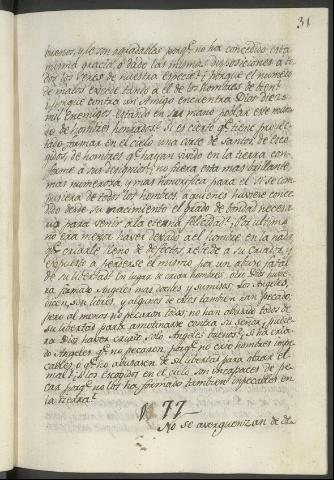 31
buenos, y le son agradables porq.e no ha concedido esta
misma gracia, ó dado las mismas disposiciones a to
dos los seres de nuestra especie? ¿porque el numero
de malos excede tanto a el de los hombres de bien?
¿porque contra un Amigo encuentra Dios diez
mil enemigos estando en su mano poblar este mun
do de hombres honrados? Si es cierto q.e tiene proyec
tado formar en el cielo una corte de Santos, de esco
gidos, de hombres q.e hayan vivido en la tierra con
forme a sus designios; ¿no fuera esta mas brillante,
mas numerosa, y mas honorifica para el si se com
pusiera de todos los hombres, a quienes huviese conce
dido desde su nacimiento el grado de bondad necesa
ria para venir a la eterna felicidad? ¿Por ultimo
no era mejor haver dexado a el hombre en la nada
q.e criarle lleno de defectos, rebelde a su Criador, y
expuesto a perderse el mismo por un abuso fatal
de su libertad? En lugar de criar hombres, este Dios huvie
ra formado Angeles mas dociles y sumisos. Los Angeles,
dicen, son libres, y algunos de ellos tambien han pecado;
pero al menos no pecaron todos; no han abusado todos de
su libertad para amotinarse contra su Señor; ¿pudie
ra Dios haver criado solo Angeles buenos? ¿Si ha cria
do Angeles q.e no pecaron, porq.e no crió hombres impe
cables, ó q.e no abusaren de su libertad para obrar el
mal? ¿Si los escogidos en el cielo son incapaces de pe
car porq.e no los ha formado tambien impecables en
la tierra?
§. 77
No se averguenzan de de